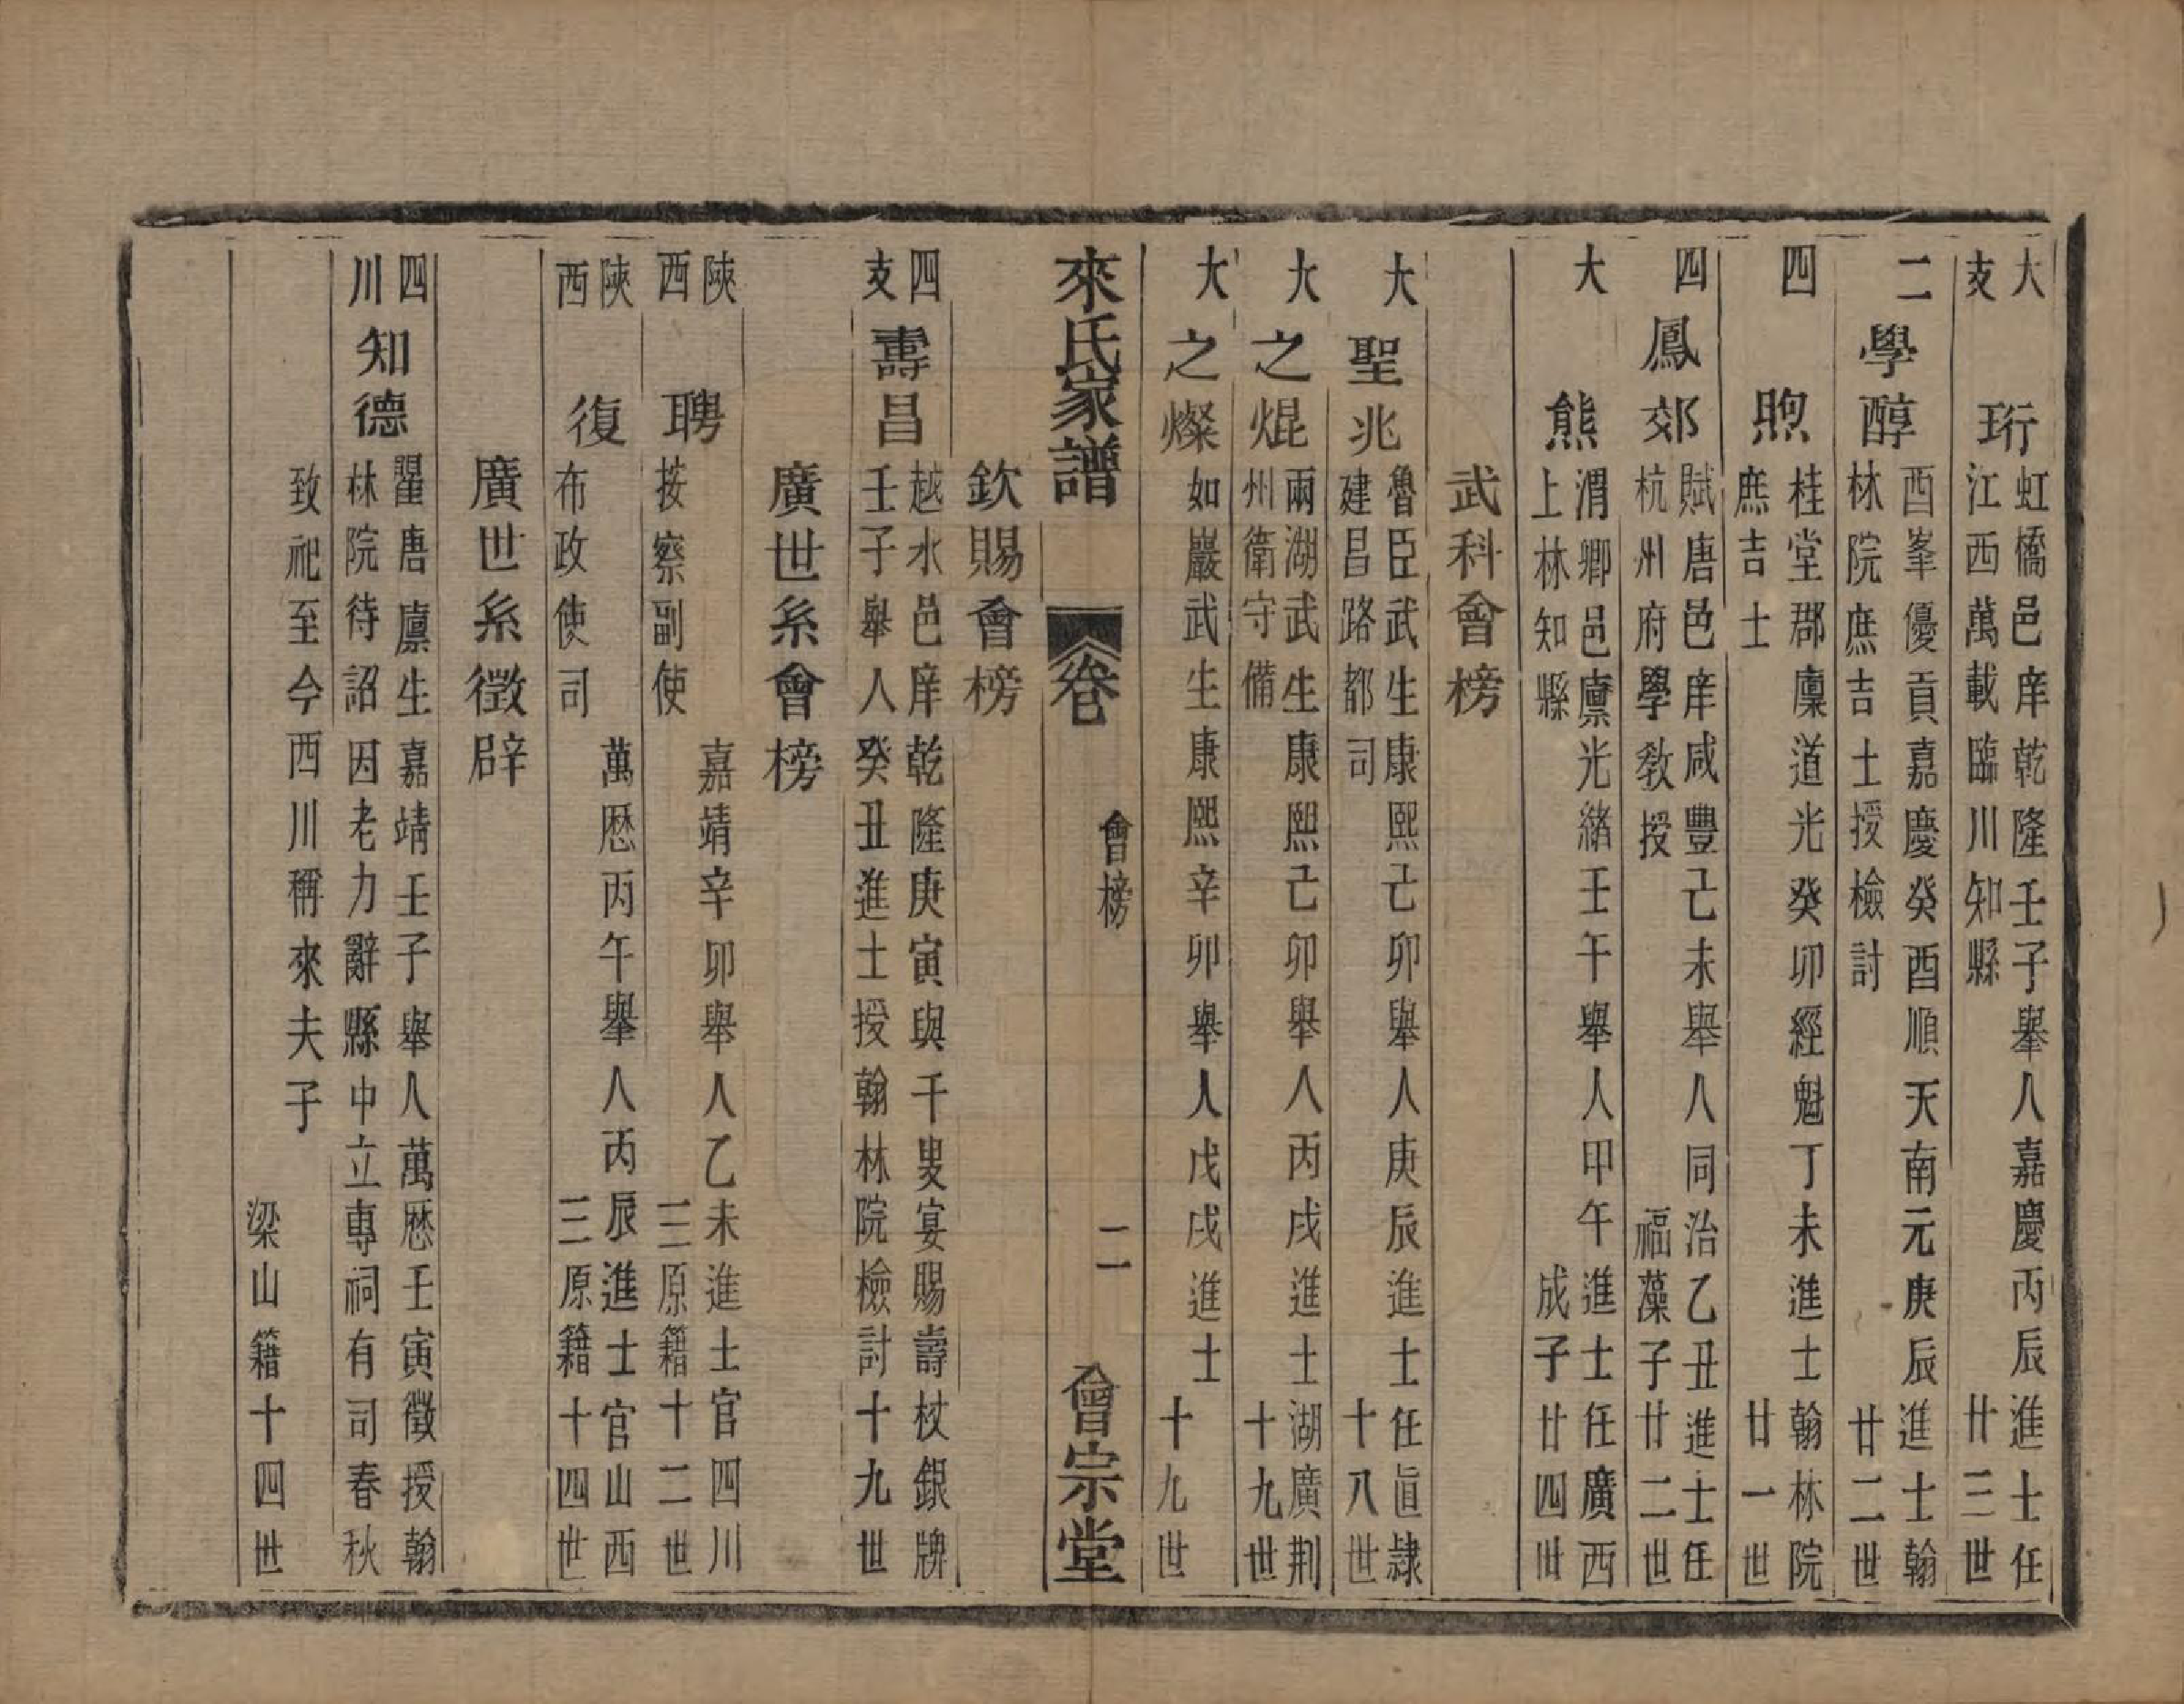 大支 珩 虹橋邑庠乾隆壬子舉人嘉慶丙辰進士任
江西萬載臨川知縣 廿三世
二 學醇 酉峯優貢嘉慶癸酉順天南元庚辰進士翰
林院庶吉士授檢討 廿二世
四 煦 桂堂郡廩道光癸卯經魁丁未進士翰林院
庶吉士 廿一世
四 鳳郊 賦唐邑庠咸豐己未舉人同治乙丑進士任
杭州府學教授 福藻子廿二世
大 熊 渭卿邑廩光緒壬午舉人甲午進士任廣西
上林知縣 成子廿四世
武科會榜
大 聖兆 魯臣武生康熙己卯舉人庚辰進士任直隸
建昌路都司 十八世
大 之焜 兩湖武生康熙己卯舉人丙戌進士湖廣荆
州衛守備 十九世
大 之燦 如巖武生康熙辛卯舉人戊戌進士 十九世
來氏家譜 卷 會榜 二 會宗堂
欽賜會榜
四支 壽昌 越水邑庠乾隆庚寅與千叟宴賜壽杖銀牌
壬子舉人癸丑進士授翰林院檢討十九世
廣世系會榜
陝西 聘 嘉靖辛卯舉人乙未進士官四川
按察副使 三原籍十二世
陝西 復 萬厯丙午舉人丙辰進士官山西
布政使司 三原籍十四世
廣世系徵辟
四川 知德 瞿唐廩生嘉靖壬子舉人萬厯壬寅徵授翰
林院待詔因老力辭縣中立專祠有司春秋
致祀至今西川稱來夫子
梁山籍十四世